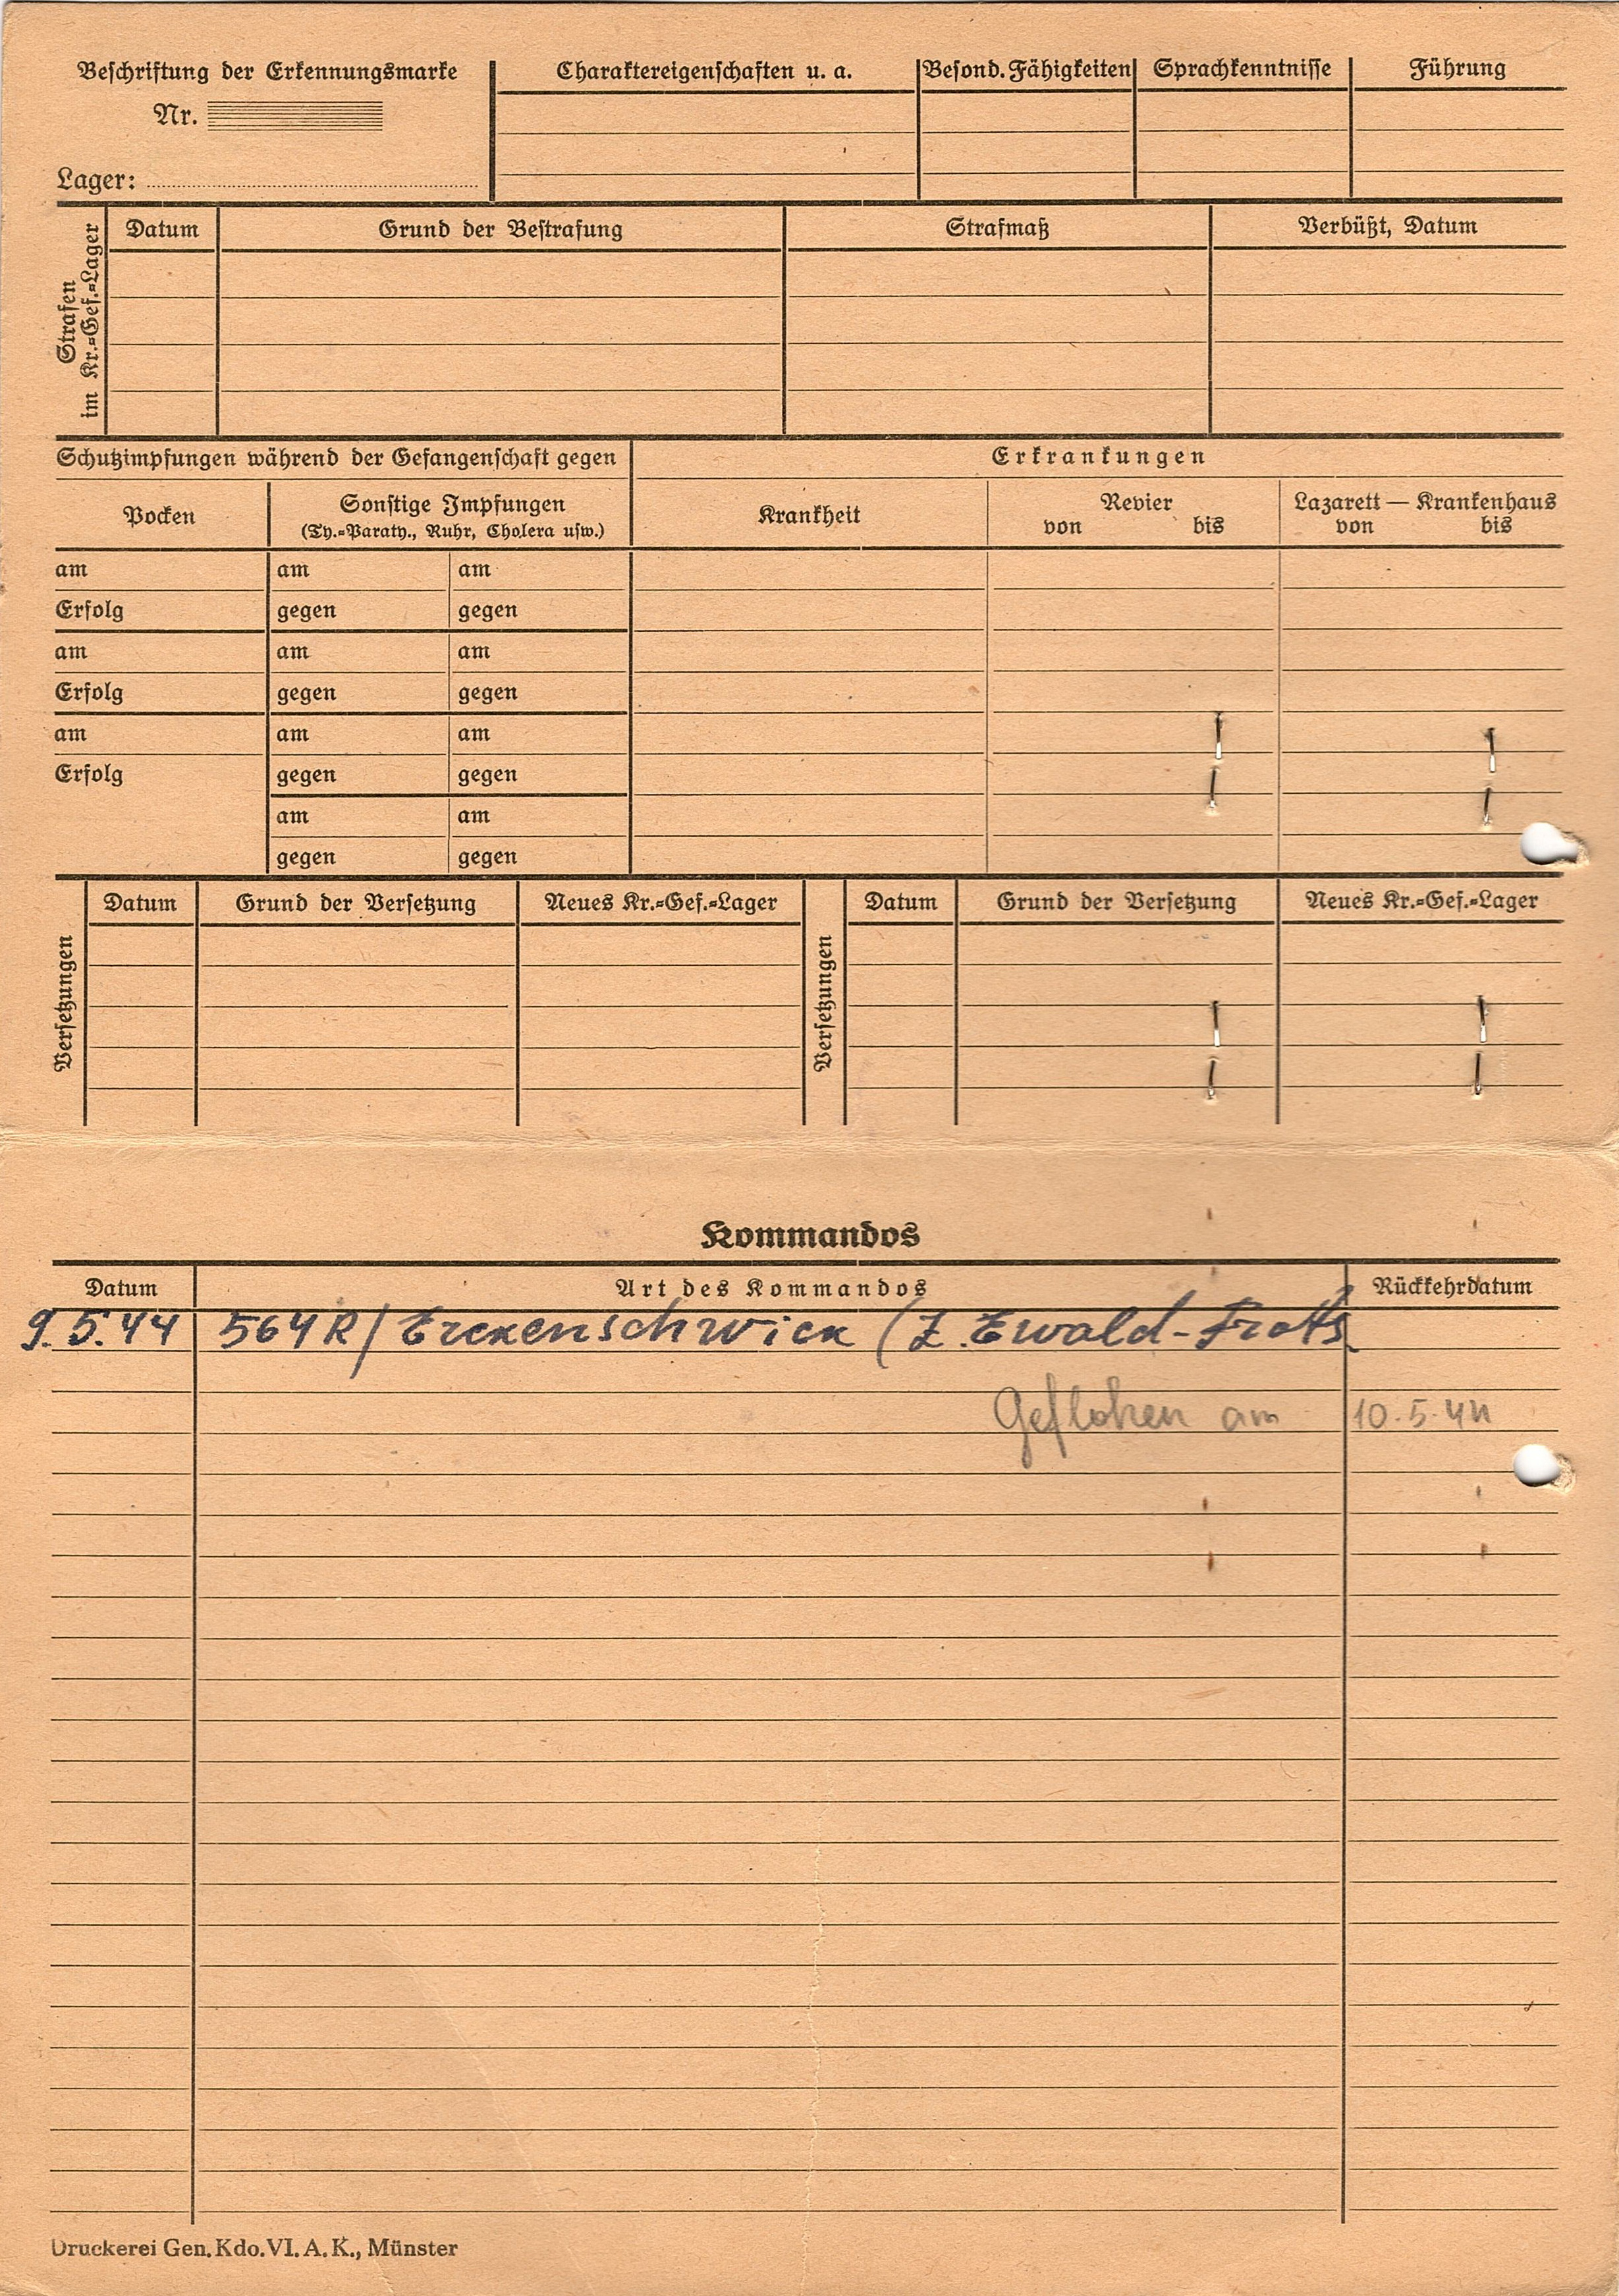 Beschriftung der Erkennungsmarke
Nr.
Lager:
Charaktereigenschaften u. a.
Besond. Fähigkeiten
Sprachkenntnisse
Führung
Strafen
im Kr.=Gef.=Lager
Datum
Grund der Bestrafung
Strafmaß
Verbüßt, Datum
Schutzimpfungen während der Gefangenschaft gegen
Erkrankungen
Pocken
Sonstige Impfungen
(Ty.=Paraty., Ruhr, Cholera usw.)
Krankheit
Revier
von bis
Lazarett — Krankenhaus
von bis
am am am
Erfolg gegen gegen
am am am
Erfolg gegen gegen
am am am
Erfolg gegen gegen
am am
gegen gegen
Versetzungen
Datum
Grund der Versetzung
Neues Kr.=Gef.=Lager
Versetzungen
Datum
Grund der Versetzung
Neues Kr.=Gef.=Lager
Kommandos
Datum Art des Kommandos Rückkehrdatum
9.5.44 564R/ Erckenschwick (Z. Ewald-
Geflohen am 10.5.44
Druckerei Gen. Kdo. VI. A. K., Münster